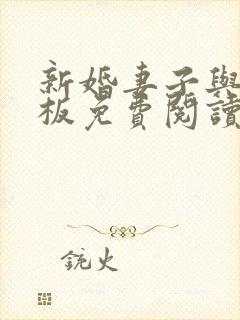 新婚妻子與
板免費閱讀
銃火